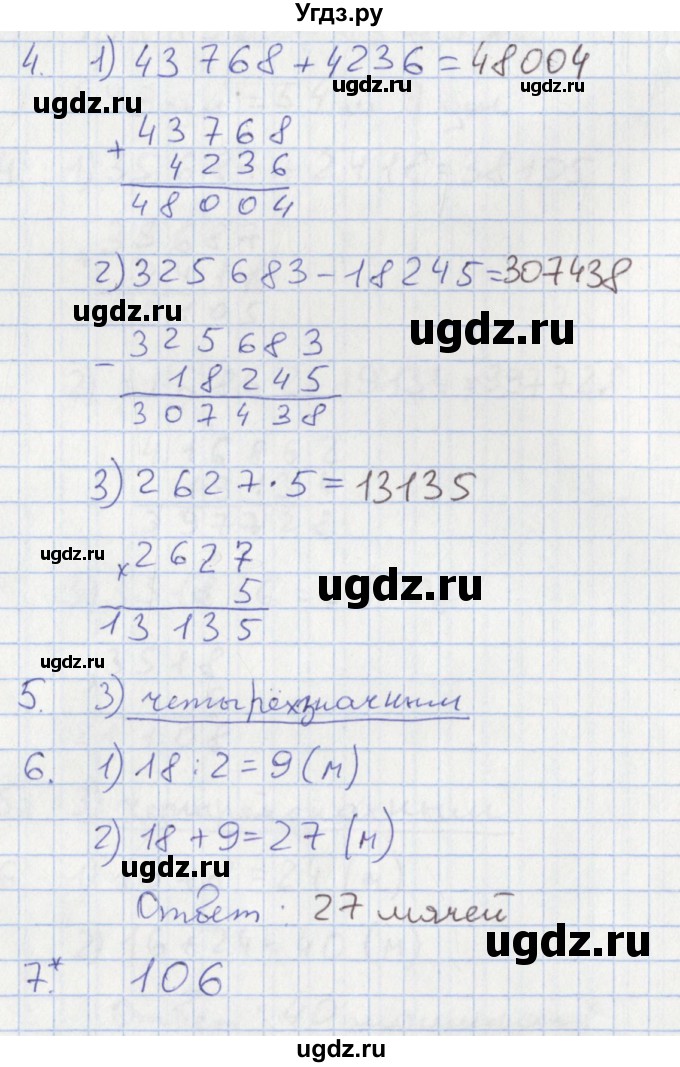 Угдз.ру
4. 1) 43 768 + 4236 = 48004
ugdz.ru ugdz.ru ugdz.ru
+ 43768
4236
48004
2) 325 683 - 18245 = 307438
ugdz.ru ugdz.ru
- 325683
18245
307438
3) 2627 · 5 = 13135
ugdz.ru
x 2627
ugdz.ru
5
13135
ugdz.ru
5. 3) четырёхзначным
6. 1) 18 : 2 = 9 (м)
2) 18 + 9 = 27 (м)
ugdz.ru
Ответ: 27 мячей
ugdz.ru
7.* 106
ugdz.ru